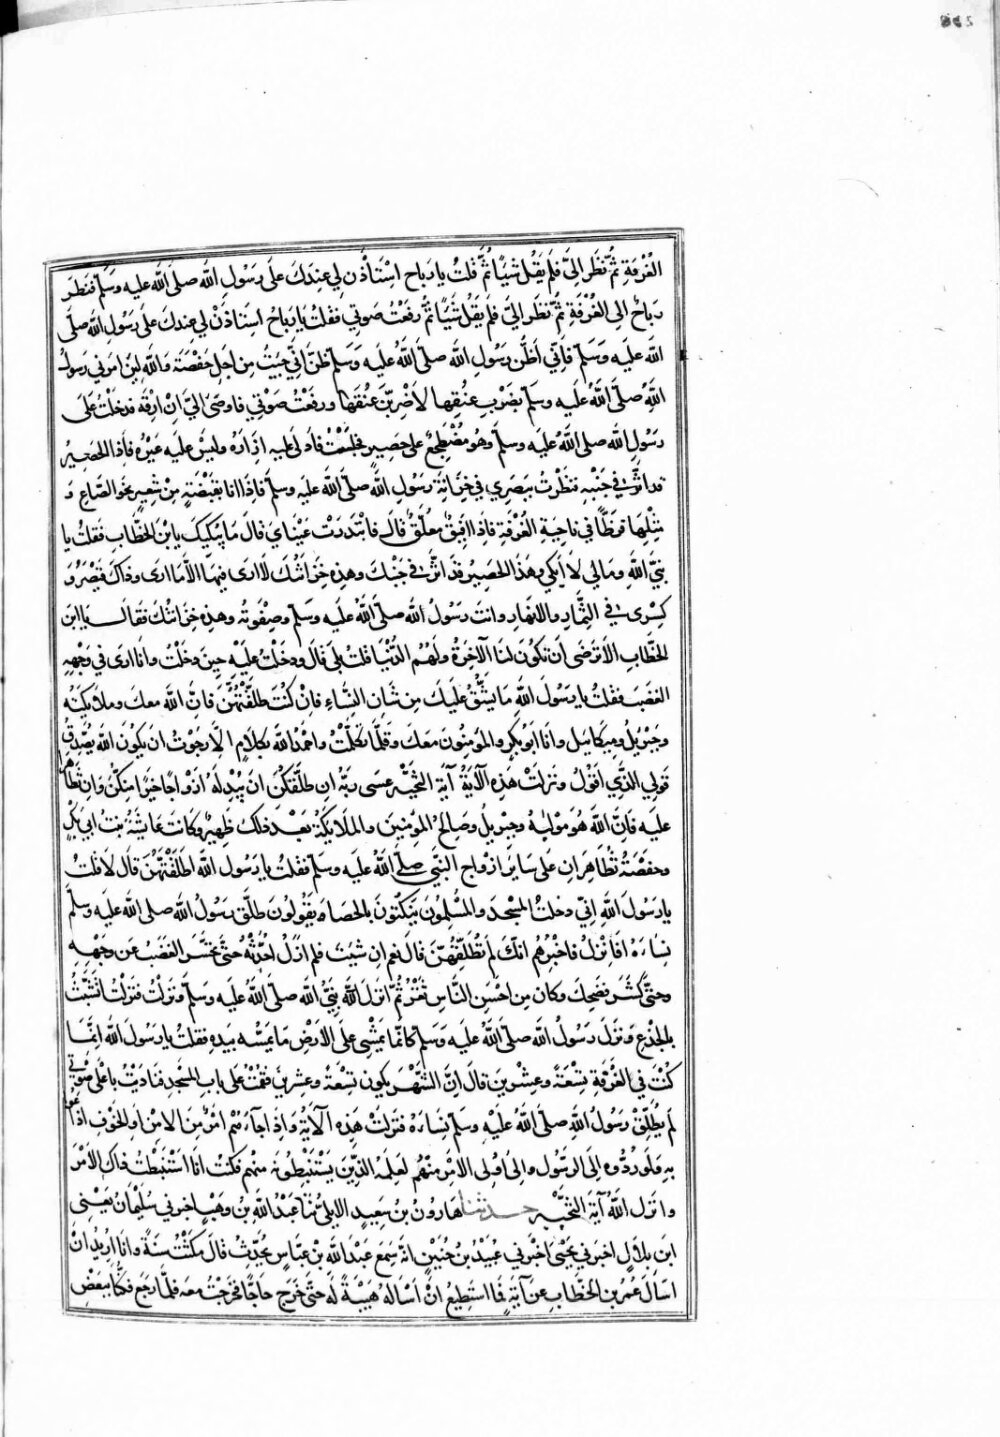 الغُرْفَةِ ثُمَّ نَظَرَ اِلَيَّ فَلَمْ يَقُلْ شَيْـًٔا ثُمَّ قُلْتُ يَا رَبَاح اسْتَأذِن لِي عِندَكَ عَلَى رَسُولِ الله صَلَّى الله عليه وسَلَّم فنَظَرَ
رَبَاحٌ الى الغُرْفَةِ ثُمَّ نَظَرَ اِلَيَّ فَلَمْ يَقُل شَيْـًٔا ثُمَّ رَفَعْتُ صَوتي فقلتُ يَا رَبَاحُ اسْتَاذِنْ لي عِندكَ على رَسُولِ الله صلّى
الله عليه وَسَلَّم فاِنّي اَظُنُّ رسُولَ الله صلّى الله عليه وسَلَّم ظَنَّ اَنّي جِيتُ مِن اَجلِ حَفْصَةَ وَاللهِ لئِن امَرَني رسولُ
اللهِ صَلَّى الله عليه وسلم بِضَرْبِ عُنُقِها لاَضْرِبَنَّ عُنُقَها ورفَعْتُ صَوْتي فاَوْمَى اِليَّ اِنْ ارْقَهْ فدخَلْتُ عَلَى
رَسُولِ الله صلى الله عليه وسلّم وهُو مُضْطَجِعٌ على حَصِيرٍ فجلَسْتُ فاَدنَى عليه اِزَارَهُ وليسَ عليه غَيْرُه فَاِذَا الحَصِيرُ
قد اثَّرَ في جَنْبِهِ فنظرتُ ببَصَرِي في خِزَانَةِ رَسُولِ الله صلّى الله عليه وسلم فَاِذَا انا بقَبْضَةٍ مِنْ شَعِيرٍ نحو الصَّاعِ وَ
مِثْلِهَا قَرَظًا في نَاحِيةِ الغُرْفَةِ فاِذَا اَفِيقٌ مُعَلَّقٌ قالَ فابْتَدَرَتْ عَيْنَايَ قَالَ مَا يُبْكِيكَ يا بْنَ الخطّابِ فَقلتُ يا
نبيَّ اللهِ ومَا لِي لا اَبْكِي وهَذَا الحَصِيرُ قد اثَّرَ في جَنْبِكَ وهذه خِزَانَتُكَ لا اَرى فيهَا الاّ مَا ارى وذاكَ قَيْصَرُ وَ
كِسْرى في الثِّمارِ والانهارِ وانتَ رَسُولُ الله صلّى الله عليه وسلم وصِفْوَتُه وهذهِ خِزَانَتُكَ فَقَالَ يا ابن
الخطّابِ الا تَرضَى اَن تَكُونَ لنَا الآخِرَةُ ولهُم الدّنْيا قلتُ بلى قَالَ ودخَلْتُ عليْهِ حِينَ دخَلْتُ وانا ارى في وَجْهِهِ
الغضَبَ فقلتُ يا رَسُولَ الله مَا يَشُقُّ عَليْكَ مِن شَانِ النّسَاءِ فاِنْ كُنْتَ طلّقْتَهُنَّ فَاِنَّ الله معكَ وملايكتَه
وجِبْرِيلَ وميكايِيلَ وانا وابُو بكرٍ والمُؤمِنُونَ معَكَ وقلَّما تكلَّمْتُ واحْمَدُ الله بكلامٍ الاّ رجَوْتُ ان يكُونَ الله يُصَدِّقُ
قولي الذّي اقُولُ ونَزَلَتْ هَذِه الآيَةُ آيةُ التّخيير عسَى ربُّه ان طلَّقَكُنَّ ان يُبْدِلَه ازواجًا خيرًا مِنكُنَّ وَاِن تظَاهَرا
عليه فاِنَّ الله هُو مَوْلَيهُ وجِبْرِيلُ وصَالِحُ المُؤمِنِينَ والملايكَةُ بَعْدَ ذلكَ ظَهِيرٌ وكانَتْ عَايشَةُ بنتُ ابي بكرٍ
وحفْصَةُ تظَاهَرانِ عَلى سَاير ازواجِ النبيِّ صلّى الله عليه وسلم فقلتُ يا رَسُولَ الله اطلّقتَهُنَّ قَالَ لا قلتُ
يا رَسُولَ اللهِ اِنّي دخلتُ المَسْجِدَ والمُسْلِمُونَ يَنكُتُونَ بالحَصَاةِ يَقُولُونَ طلّقَ رسُولُ الله صلى الله عليه وسلّم
نِسَاءَهُ اَفَاَنْزِلُ فاُخْبِرُهُم انّكَ لم تُطَلّقهُنَّ قالَ نعَم ان شِئتَ فلم ازَلْ اُحَدِّثُهُ حتّى تَحَسَّرَ الغَضَبُ عَن وَجْهِهِ
وحتّى كشَرَ فضَحِكَ وكان مِن احسَنِ النّاسِ ثَغْرًا ثمَّ نزَلَ نبِيُّ الله صلّى الله عليه وسلم ونزلتُ فنزَلتُ اَتَشَبّثُ
بالجِذْعِ وَنزَلَ رسُولُ الله صلّى الله عليه وَسَلم كانّما يَمْشِي عَلَى الاَرْضِ مَا يَمَسُّه بيَدِهِ فقلتُ يا رَسُولَ الله اِنّمَا
كُنْتَ في الغُرفَةِ تِسْعَةً وعِشْرِينَ قالَ اِنَّ الشّهْرَ يكون تِسْعَةً وعِشرِينَ فقُمْتُ على بابِ المسْجدِ فناديتُ باَعْلَى صَوْتي
لَم يُطَلّقْ رسُولُ اللهِ صَلَّى الله عَلَيْهِ وسلَّم نِسَاءَهُ فنَزَلَتْ هَذِه الآيَةُ وَاِذَا جَاءَهُم امرٌ مِنَ الامنِ اَو الخوفِ اذَاعُوا
بِهِ ولَو رَدُّوهُ الى الرّسُولِ والى اُولى الامْرِ منهُم لعَلِمَهُ الذّينَ يَسْتَنبِطُونَهُ منهُم فكنتُ انا اسْتَنبَطْتُ ذاكَ الأمْرَ
وانزَل اللهُ آيَةَ التّخيير حدثنا هَارُونُ بنُ سَعِيدٍ الايلىُّ نَا عَبْدُ اللهِ بنُ وَهْبٍ اخبرني سُلَيْمَانُ يَعْنِى
ابنَ بِلالٍ اخبرَني يَحْيَى اَخْبَرني عُبَيْدُ بنُ حُنَيْنٍ انّه سَمِعَ عَبْدَ اللهِ بْنَ عبّاسٍ يُحَدِّثُ قَالَ مَكَثْتُ سَنَةً وانا اُرِيدُ انْ
اسالَ عُمَرَ بنَ الخطّابِ عَنْ آيَةٍ فمَا استَطِيعُ انْ اسْالَهُ هَيْبَةً لَه حتّى خَرَجَ حَاجًّا فخَرَجْتُ معَه فلمّا رجَع فكُنّا ببَعْضِ